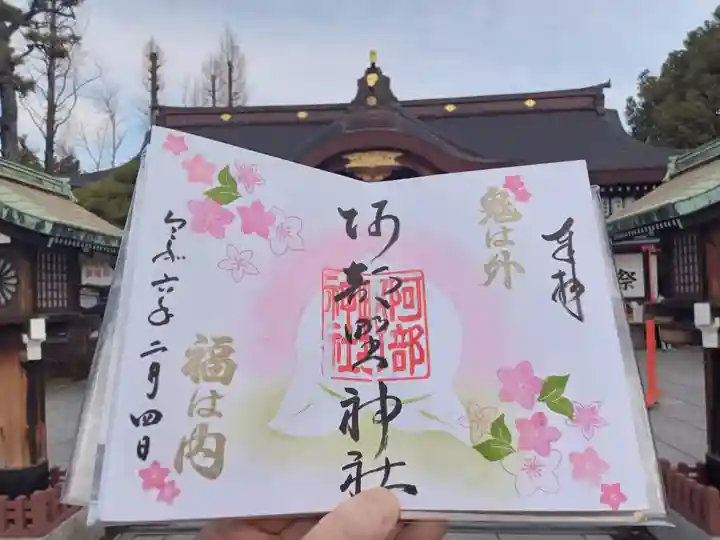 奉拝
鬼は外
阿部野神社
阿部
神社
福は内
令和六年二月四日
祭